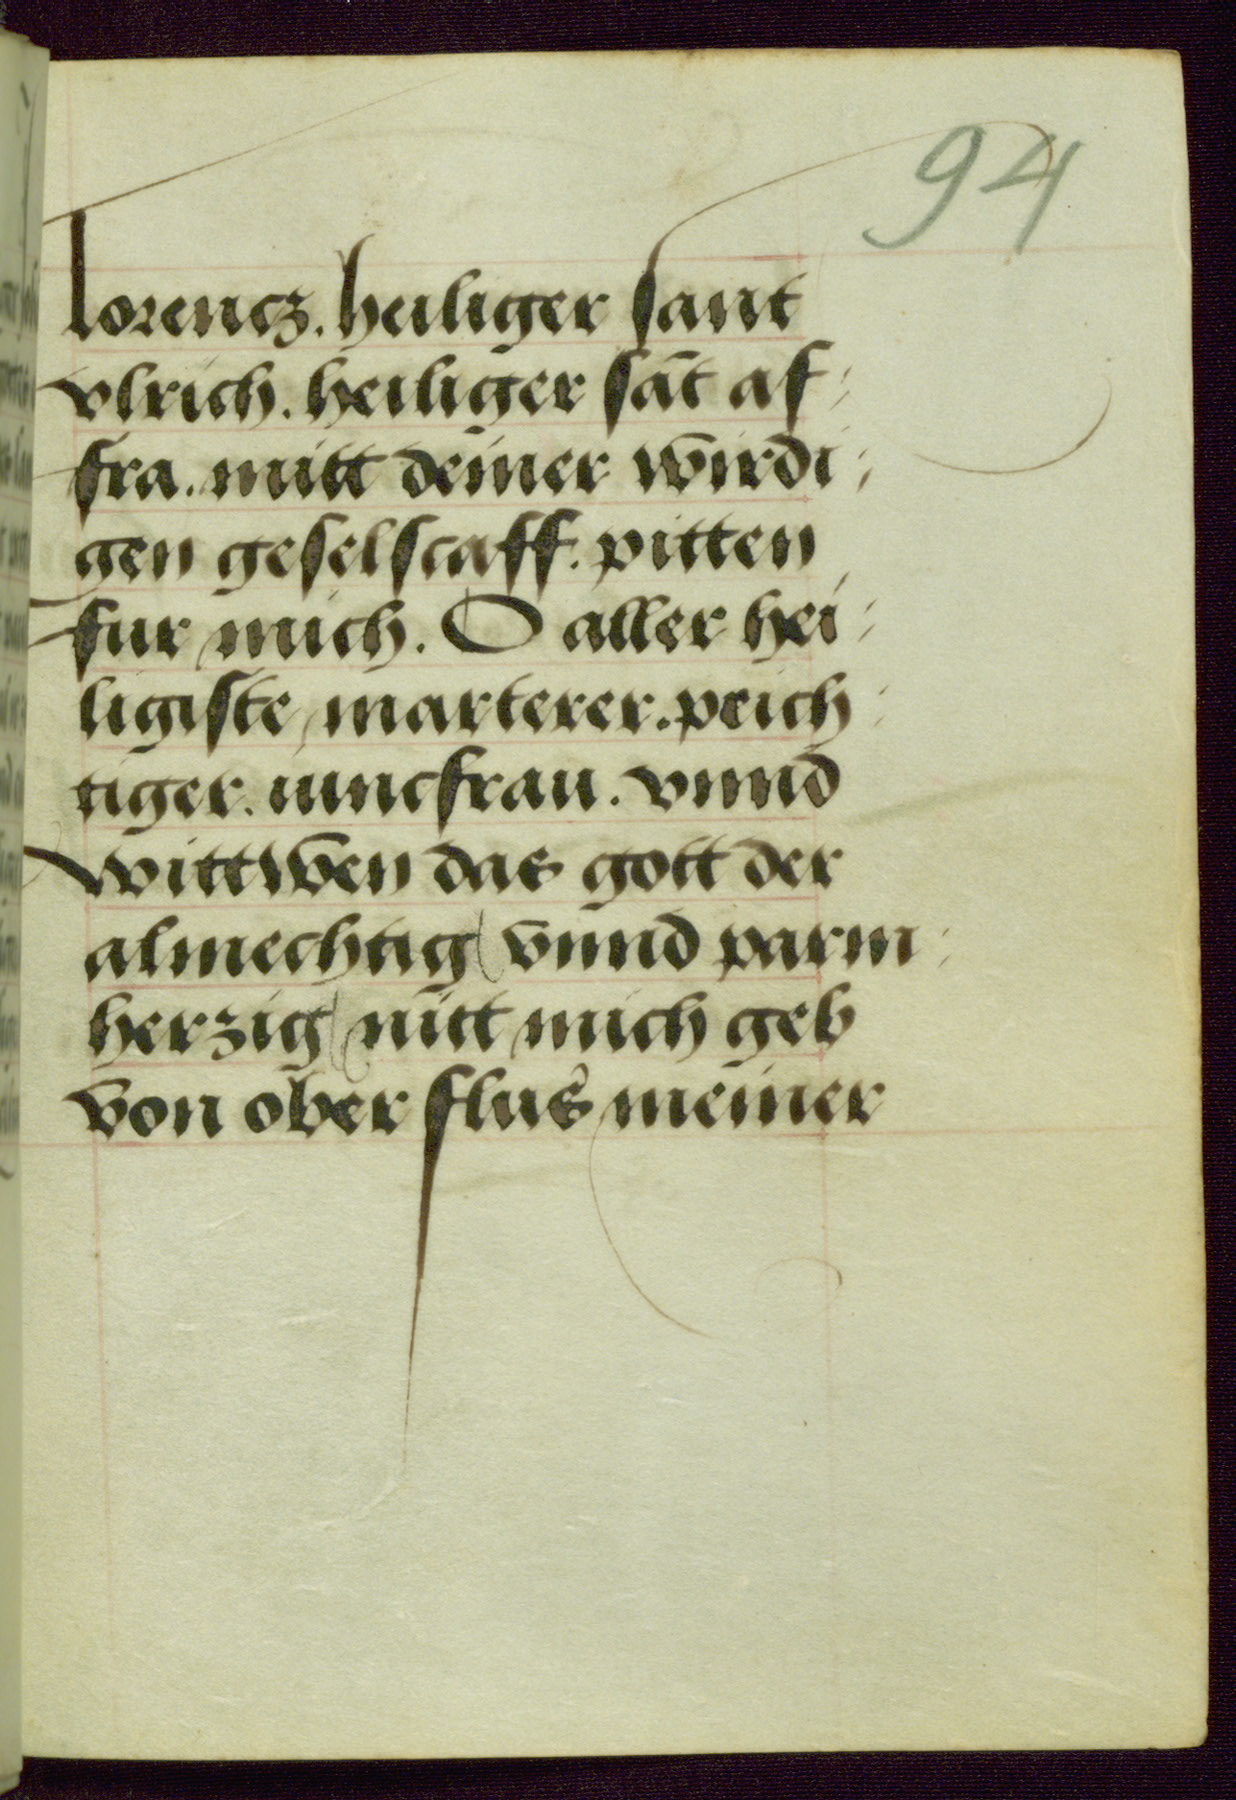 94
lorencz. heiliger sant
vlrich. heiliger sāt af-
fra. mitt deiner wirdi-
gen geselscaff. pitten
fur mich. O aller hei-
ligiste marterer. peich-
tiger. iuncfrau. vnnd
wittwen das gott der
almechtig vnnd parm-
herzig mitt mich geb
von ober flus meiner